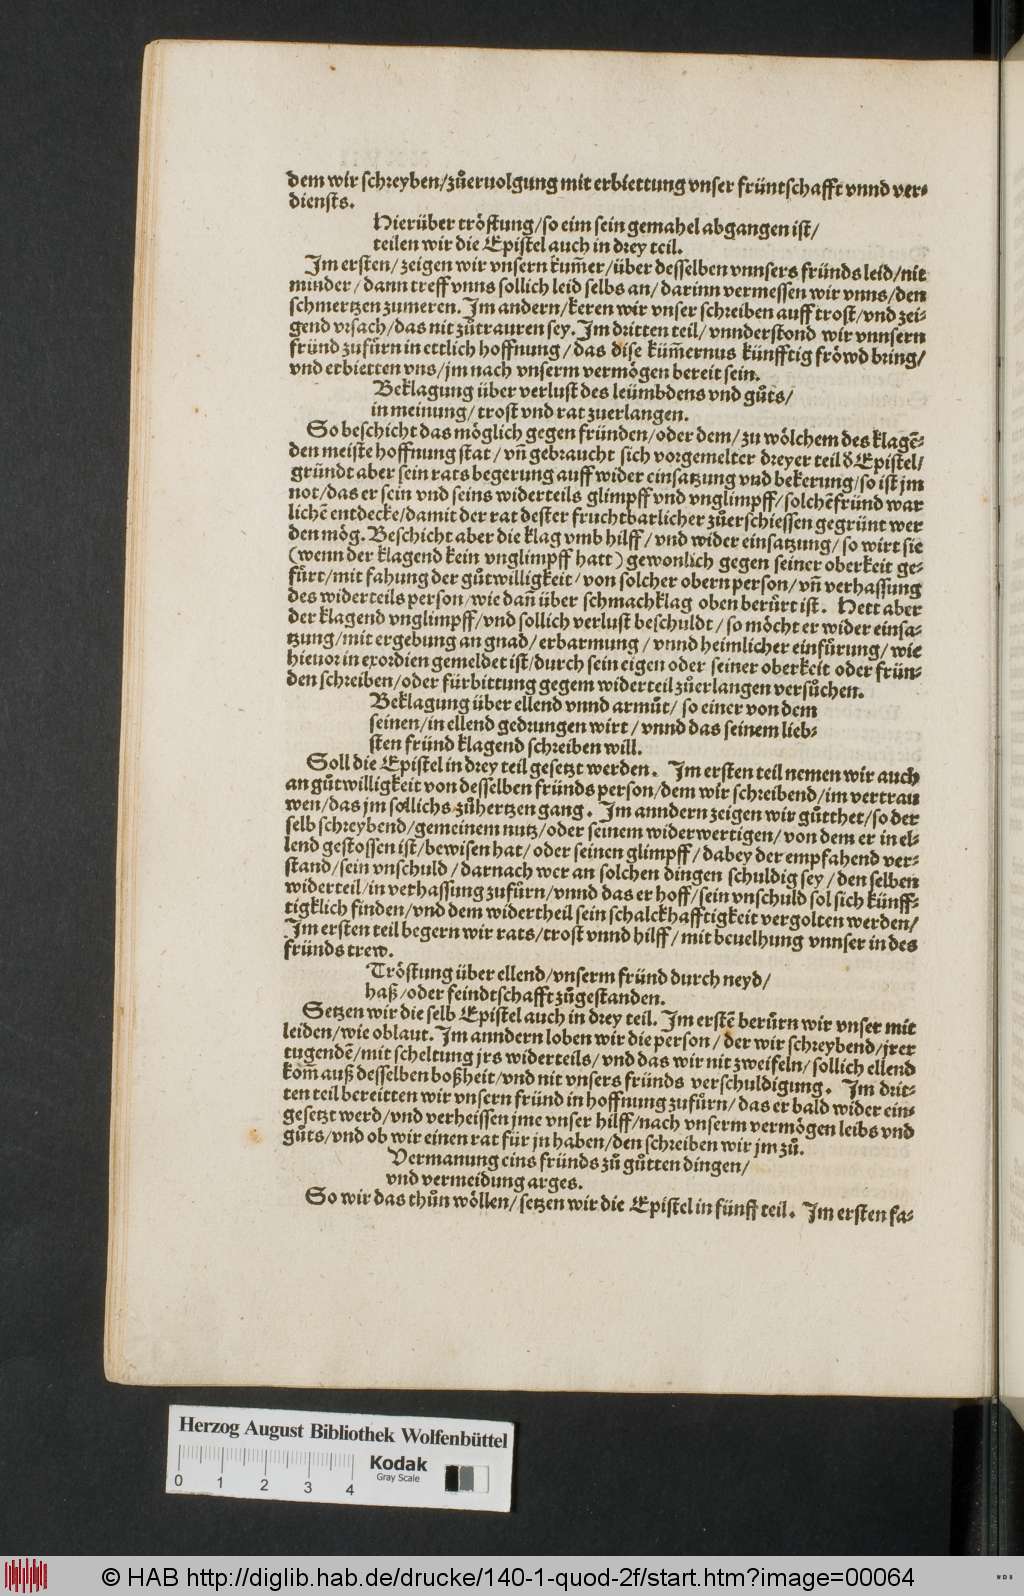 dem wir schreyben/zůeruolgung mit erbiettung vnser früntschafft vnnd ver⸗
diensts.
Hierüber tröstung/so eim sein gemahel abgangen ist/
teilen wir die Epistel auch in drey teil.
Im ersten/zeigen wir vnsern kum̃er/über desselben vnnsers fründs leid/nit
minder/dann treff vnns sollich leid selbs an/darinn vermessen wir vnns/den
schmertzen zumeren. Im andern/keren wir vnser schreiben auff trost/vnd zei⸗
gend vrsach/das nit zůtrauren sey. Im dritten teil/vnnderstond wir vnnsern
fründ zufůrn in ettlich hoffnung/das dise küm̃ernus künfftig fröwd bring/
vnd erbietten vns/jm nach vnserm vermögen bereit sein.
Beklagung über verlust des leümbdens vnd gůts/
in meinung/trost vnd rat zuerlangen.
So beschicht das möglich gegen fründen/oder dem/zu wölchem des klagẽ⸗
den meiste hoffnung stat/vñ gebraucht sich vorgemelter dreyer teil ð Epistel/
gründt aber sein rats begerung auff wider einsatzung vnd bekerung/so ist jm
not/das er sein vnd seins widerteils glimpff vnd vnglimpff/solchẽ fründ war
lichẽ entdecke/damit der rat dester fruchtbarlicher zůerschiessen gegrünt wer
den mög. Beschicht aber die klag vmb hilff/vnd wider einsatzung/so wirt sie
(wenn der klagend kein vnglimpff hatt) gewonlich gegen seiner oberkeit ge⸗
fůrt/mit fahung der gůtwilligkeit/von solcher obern person/vñ verhassung
des widerteils person/wie dañ über schmachklag oben berůrt ist. Hett aber
der klagend vnglimpff/vnd sollich verlust beschuldt/so möcht er wider einsa⸗
tzung/mit ergebung an gnad/erbarmung/vnnd heimlicher einfůrung/wie
hieuor in exordien gemeldet ist/durch sein eigen oder seiner oberkeit oder frün⸗
den schreiben/oder fürbittung gegem widerteil zůerlangen versůchen.
Beklagung über ellend vnnd armůt/so einer von dem
seinen/in ellend gedrungen wirt/vnnd das seinem lieb⸗
sten fründ klagend schreiben will.
Soll die Epistel in drey teil gesetzt werden. Im ersten teil nemen wir auch
an gůtwilligkeit von desselben fründs person/dem wir schreibend/im vertrau
wen/das jm sollichs zůhertzen gang. Im anndern zeigen wir gůtthet/so der
selb schreybend/gemeinem nutz/oder seinem widerwertigen/von dem er in el⸗
lend gestossen ist/bewisen hat/oder seinen glimpff/dabey der empfahend ver⸗
stand/sein vnschuld/darnach wer an solchen dingen schuldig sey/den selben
widerteil/in verhassung zufůrn/vnnd das er hoff/sein vnschuld sol sich künff⸗
tigklich finden/vnd dem widertheil sein schalckhafftigkeit vergolten werden/
Im ersten teil begern wir rats/trost vnnd hilff/mit beuelhung vnnser in des
fründs trew.
Tröstung über ellend/vnserm fründ durch neyd/
haß/oder feindtschafft zůgestanden.
Setzen wir die selb Epistel auch in drey teil. Im erstẽ berůrn wir vnser mit
leiden/wie oblaut. Im anndern loben wir die person/der wir schreybend/jrer
tugendẽ/mit scheltung jrs widerteils/vnd das wir nit zweifeln/sollich ellend
kom̃ auß desselben boßheit/vnd nit vnsers fründs verschuldigung. Im drit⸗
ten teil bereitten wir vnsern fründ in hoffnung zufůrn/das er bald wider ein⸗
gesetzt werd/vnd verheissen jme vnser hilff/nach vnserm vermögen leibs vnd
gůts/vnd ob wir einen rat für jn haben/den schreiben wir jm zů.
Vermanung eins fründs zů gůtten dingen/
vnd vermeidung arges.
So wir das thůn wöllen/setzen wir die Epistel in fünff teil. Im ersten fa⸗
Herzog August Bibliothek Wolfenbüttel
Kodak
Gray Scale
0 1 2 3 4
© HAB http://diglib.hab.de/drucke/140-1-quod-2f/start.htm?image=00064